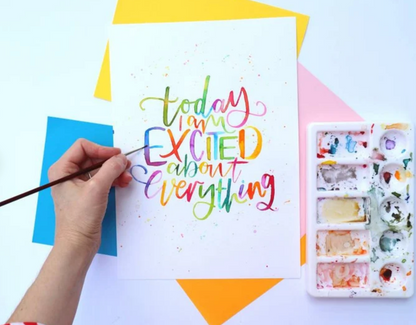 today
i am
EXCITED
about
everything